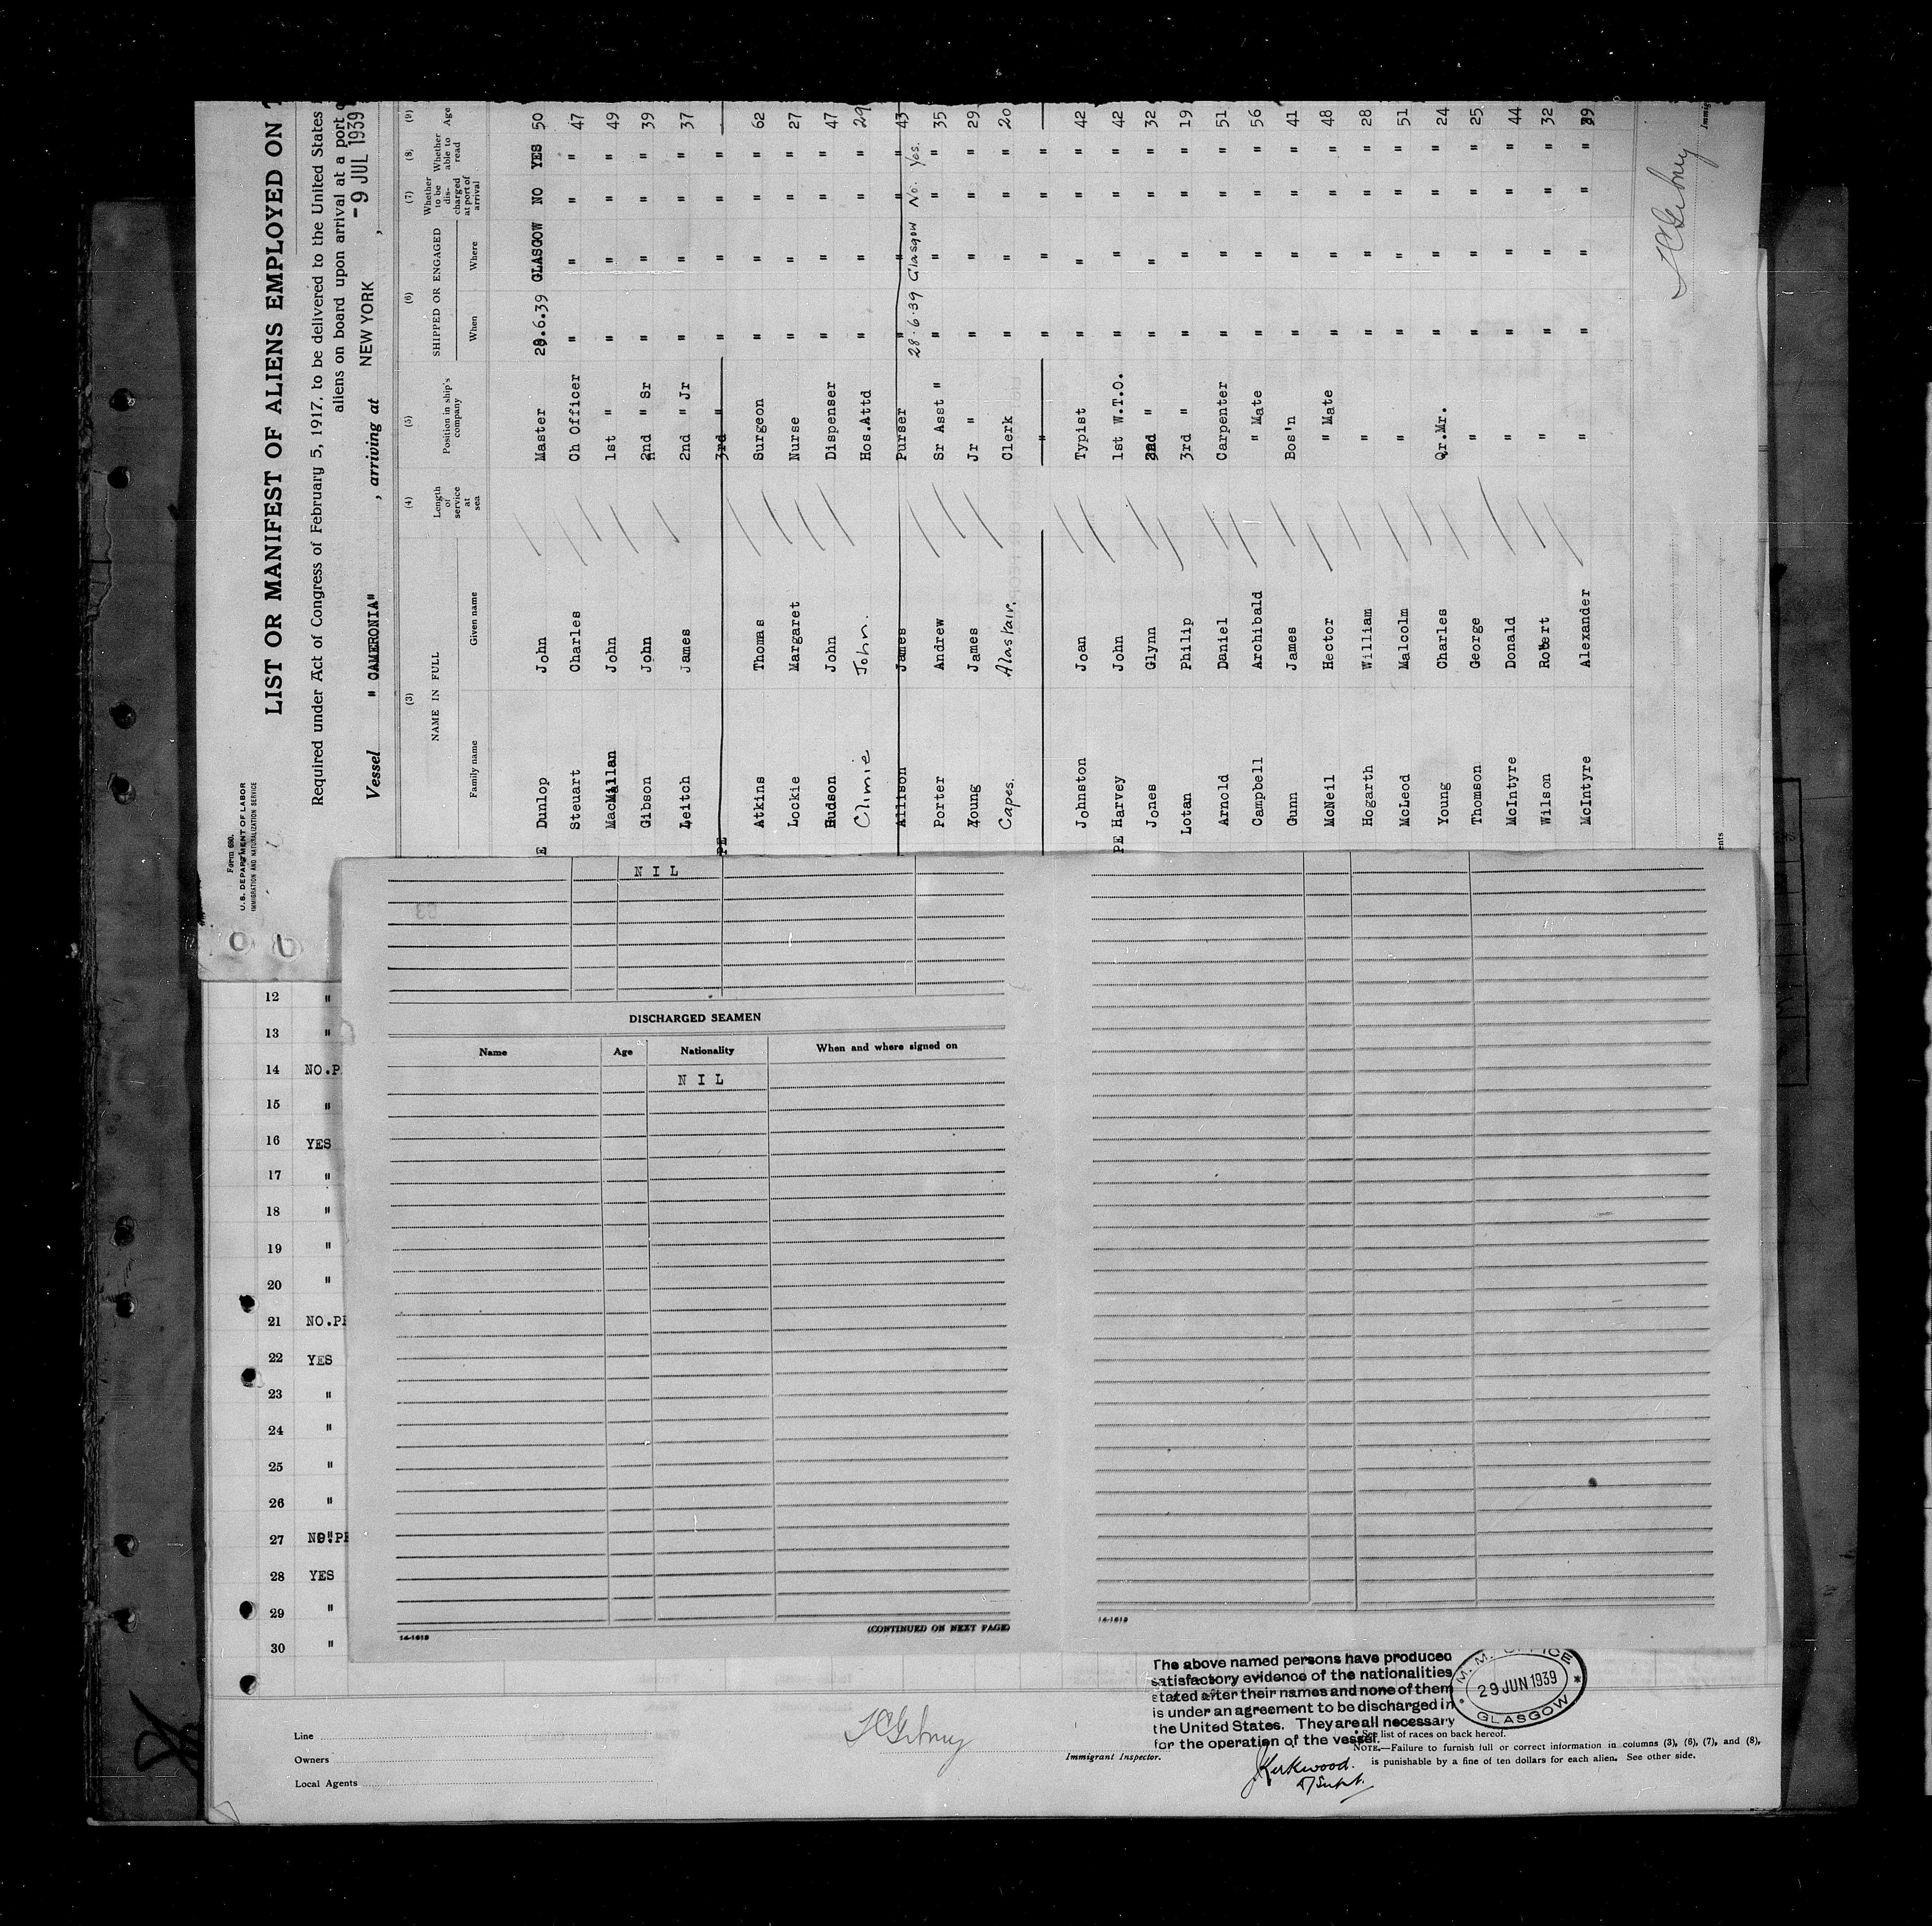 Form 680.
U. S. DEPARTMENT OF LABOR
IMMIGRATION AND NATURALIZATION SERVICE
LIST OR MANIFEST OF ALIENS EMPLOYED ON
Required under Act of Congress of February 5, 1917, to be delivered to the United States
aliens on board upon arrival at a port
Vessel " CAMERONIA" , arriving at NEW YORK , -9 JUL 1939
(3) (4) (5) (6) (7) (8) (9)
NAME IN FULL Length of service at sea Position in ship's company SHIPPED OR ENGAGED Whether to be discharged at port of arrival Whether able to read Age
Family name Given name When Where
E Dunlop John Master 28.6.39 GLASGOW NO YES 50
Steuart Charles Ch Officer " " " " 47
MacMillan John 1st " " " " " 49
Gibson John 2nd " Sr " " " " 39
Leitch James 2nd " Jr " " " " 37
PE 3rd " " " " "
Atkins Thomas Surgeon " " " " 62
Lockie Margaret Nurse " " " " 27
Hudson John Dispenser " " " " 47
Climie John. Hos.Attd " " " " 29
Allison James Purser " " " " 43
28.6.39 Glasgow No. Yes.
Porter Andrew Sr Asst " " " " " 35
Young James Jr " " " " " 29
Capes. Alastair. Clerk " " " " 20
" " " " "
Johnston Joan Typist " " " " 42
PE Harvey John 1st W.T.O. " " " " 42
Jones Glynn 2nd " " " " " 32
Lotan Philip 3rd " " " " " 19
Arnold Daniel Carpenter " " " " 51
Campbell Archibald " Mate " " " " 56
Gunn James Bos'n " " " " 41
McNeil Hector " Mate " " " " 48
Hogarth William " " " " " 28
McLeod Malcolm " " " " " 51
Young Charles Qr.Mr. " " " " 24
Thomson George " " " " " 25
McIntyre Donald " " " " " 44
Wilson Robert " " " " " 32
McIntyre Alexander " " " " " 39
Immig
ents
NIL
DISCHARGED SEAMEN
Name Age Nationality When and where signed on
NIL
(CONTINUED ON NEXT PAGE)
14-1618
14-1618
12 "
13 "
14 NO.P
15 "
16 YES
17 "
18 "
19 "
20 "
21 NO.PE
22 YES
23 "
24 "
25 "
26 "
27 NO.PE
28 YES
29 "
30 "
The above named persons have produced
satisfactory evidence of the nationalities
stated after their names and none of them
is under an agreement to be discharged in
the United States. They are all necessary
for the operation of the vessel.
M. M. OFFICE
29 JUN 1939
GLASGOW
Line
Owners
Local Agents
Immigrant Inspector.
* See list of races on back hereof.
NOTE.—Failure to furnish full or correct information in columns (3), (6), (7), and (8),
is punishable by a fine of ten dollars for each alien. See other side.
JKirkwood.
D/Supt.